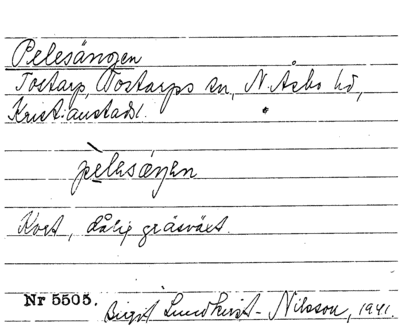 Pelesängen
Tostarp, Tostarps sn, N. Åsbo hd,
Kristianstadsl.
pè̱lesäŋen
Kort, dålig gräsväxt.
Nr 5505. Birgit Lundkvist-Nilsson, 1941.